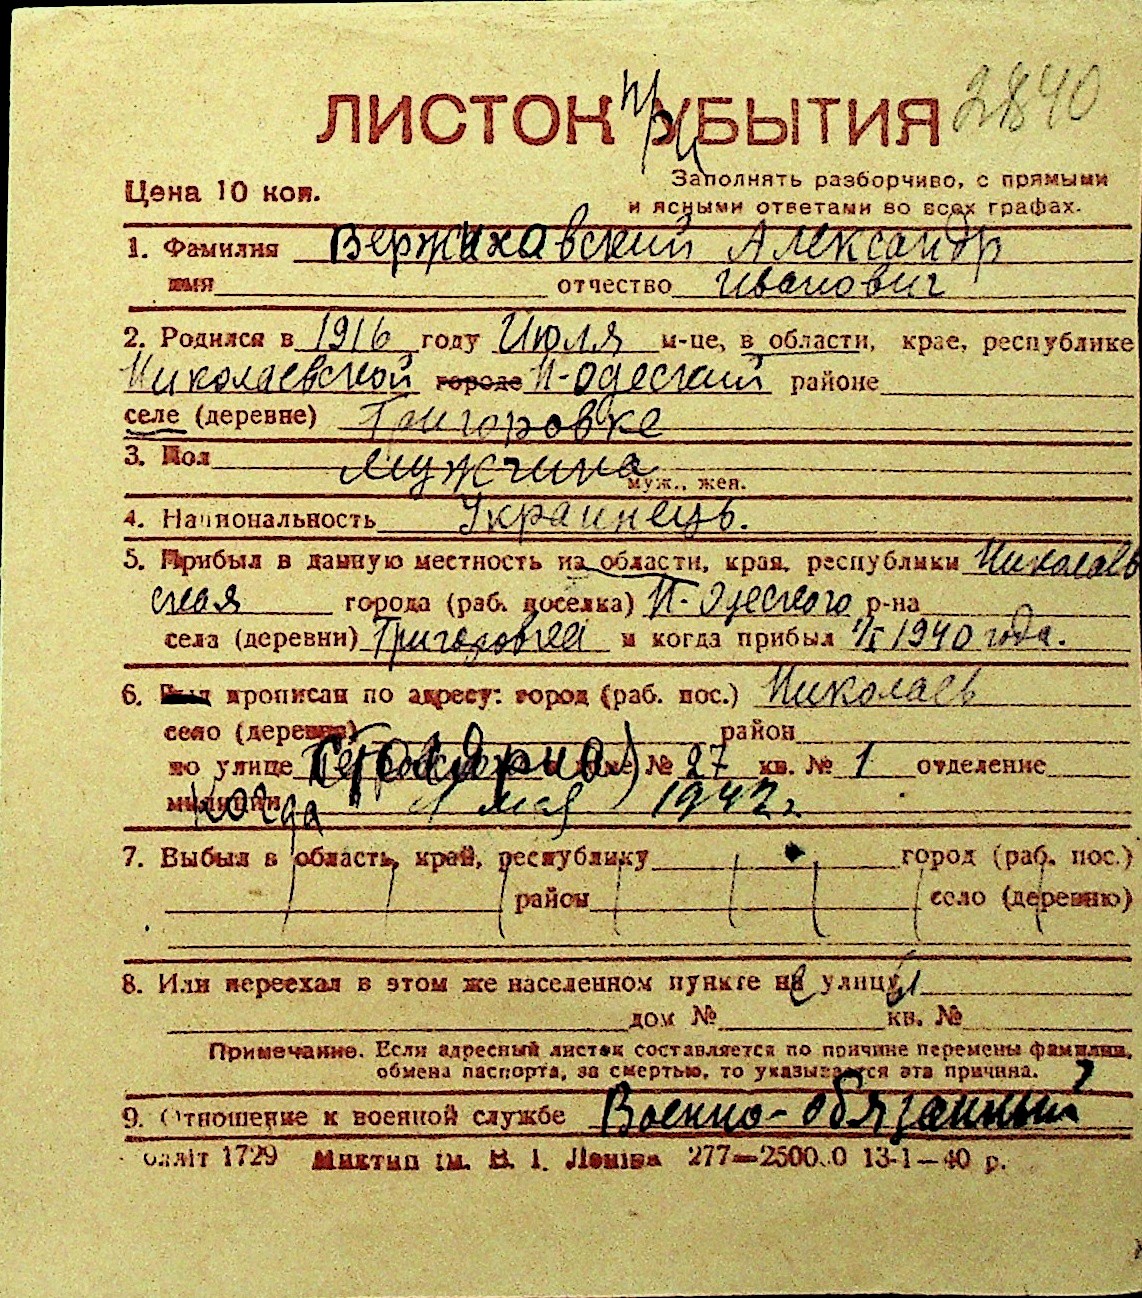 ЛИСТОК при УБЫТИЯ 2840
Цена 10 коп.
Заполнять разборчиво, с прямыми
и ясными ответами во всех графах.
1. Фамилия Вержиховский Александр
имя отчество Иванович
2. Родился в 1916 году Июля м-це, в области, крае, республике
Николаевской городе Н-Одеский районе
селе (деревне) Григоровке
3. Пол мужчина
муж., жен.
4. Национальность Украинець.
5. Прибыл в данную местность из области, края, республики Николаев
ская города (раб. поселка) Н-Одеского р-на
села (деревни) Григоровка и когда прибыл 1/I 1940 года.
6. Был прописан по адресу: город (раб. пос.) Николаев
село (деревня) район
по улице № 27 кв. № 1 отделение
милиции Когда 1 мая 1942 г.
7. Выбыл в область, край, республику город (раб. пос.)
район село (деревню)
8. Или переехал в этом же населенном пункте на улицу
дом № кв. №
Примечание. Если адресный листок составляется по причине перемены фамилии,
обмена паспорта, за смертью, то указывается эта причина.
9. Отношение к военной службе Военно-обязанный
1729 Миктип ім. В. І. Леніна 277—2500.0 13-1—40 р.